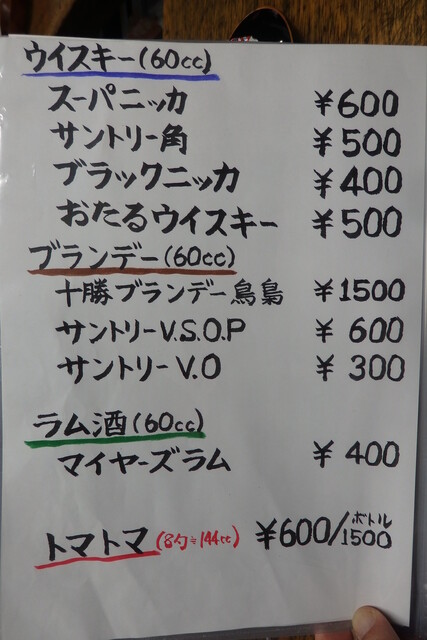 ウイスキー(60cc)
スーパニッカ ¥600
サントリー角 ¥500
ブラックニッカ ¥400
おたるウイスキー ¥500
ブランデー(60cc)
十勝ブランデー鳥梟 ¥1500
サントリーV.S.O.P ¥600
サントリーV.O ¥300
ラム酒(60cc)
マイヤーズラム ¥400
トマトマ(8勺≒144cc) ¥600/ボトル1500